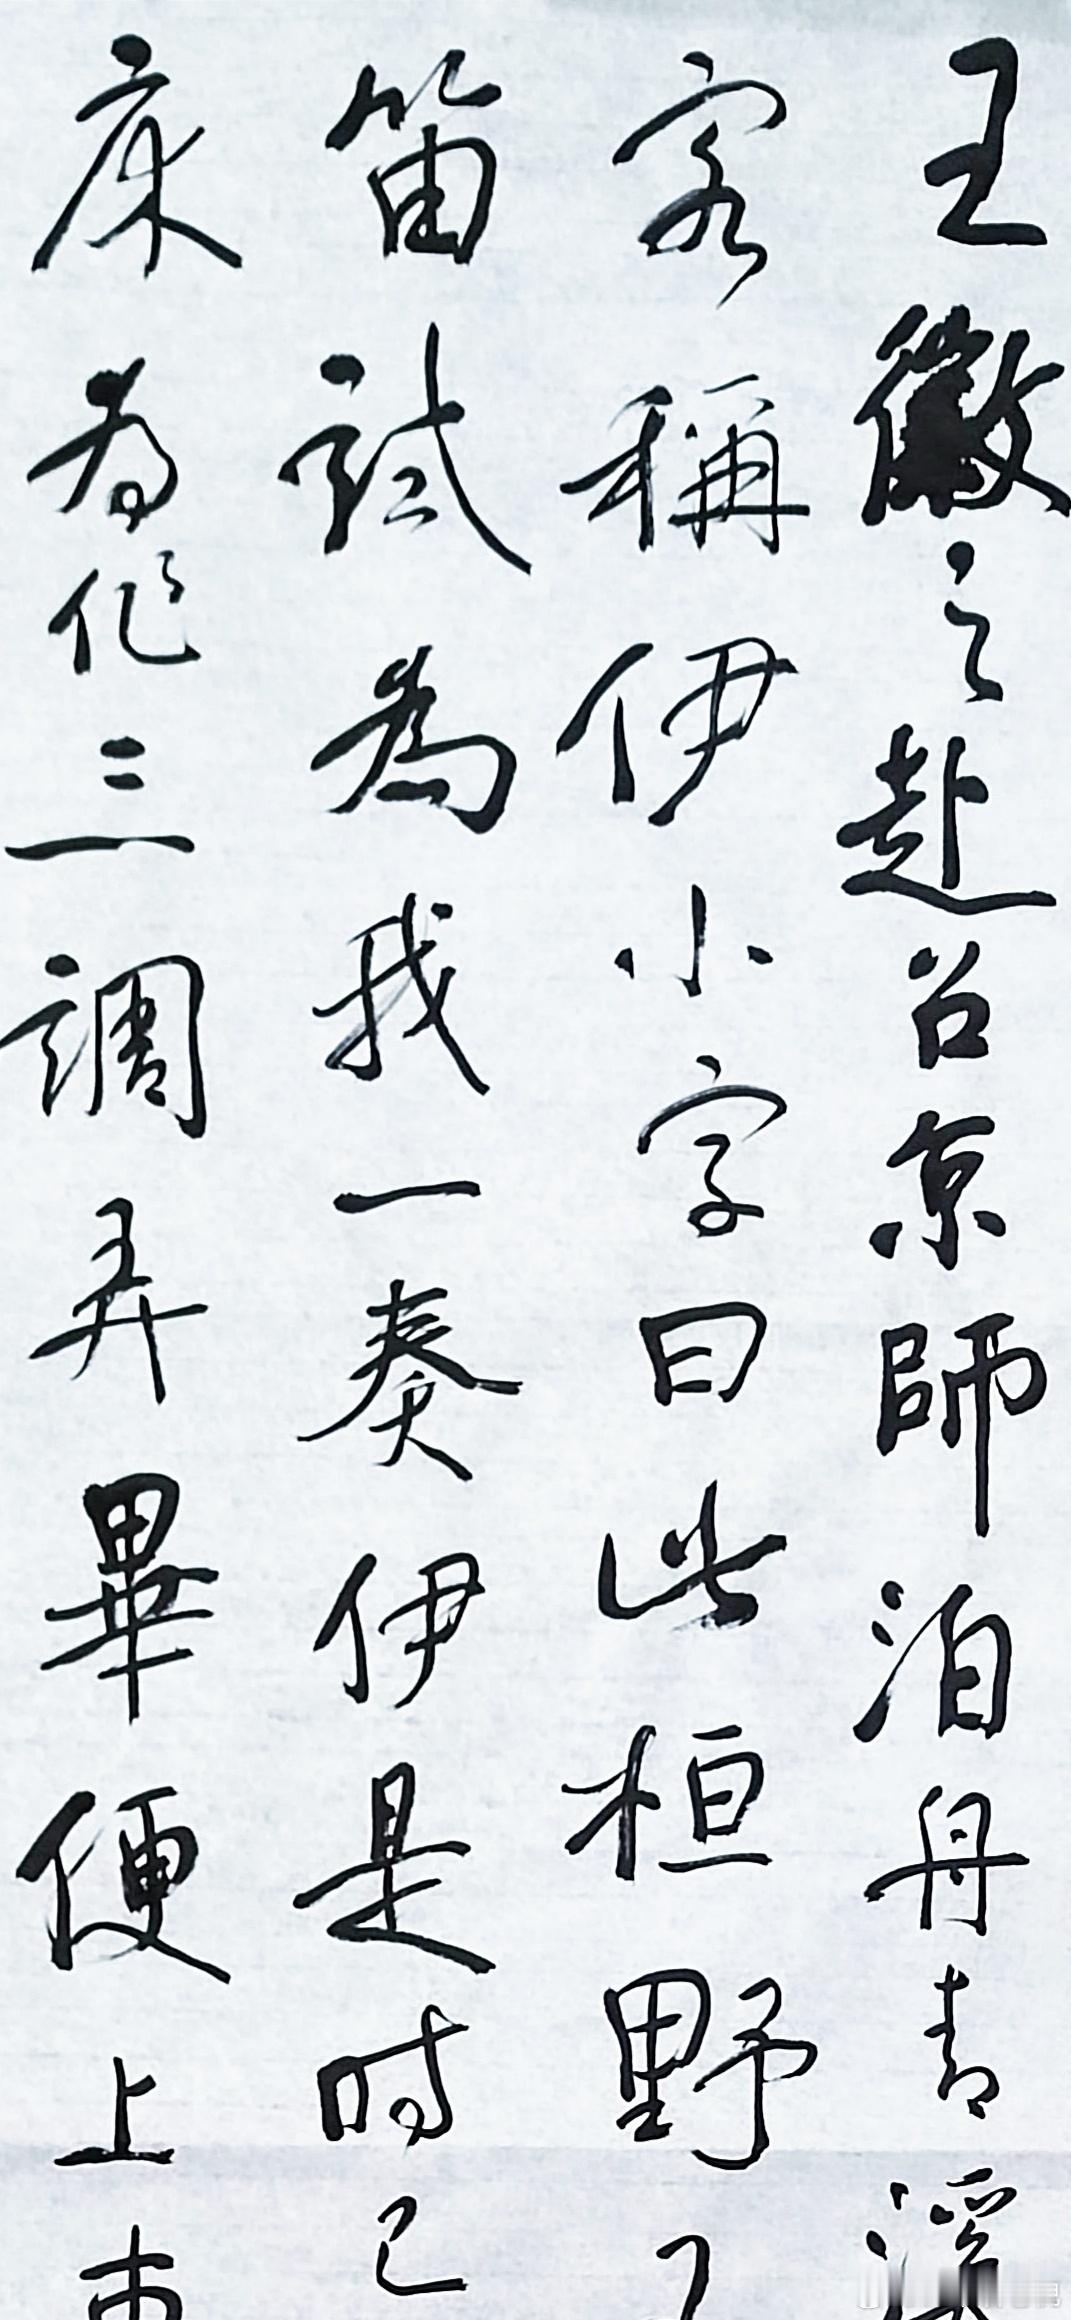 王徽之赴召京師泊舟青溪
客稱伊小字曰此桓野
笛試為我一奏伊是时已
床为作三調弄畢便上車